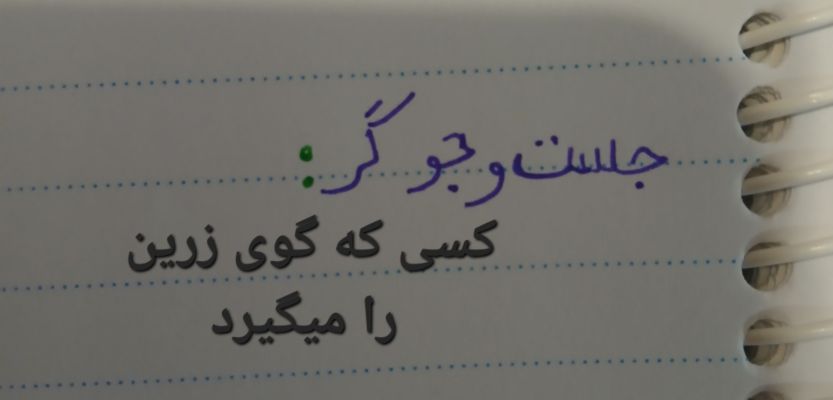 جست و جو گر:
کسی که گوی زرین
را میگیرد